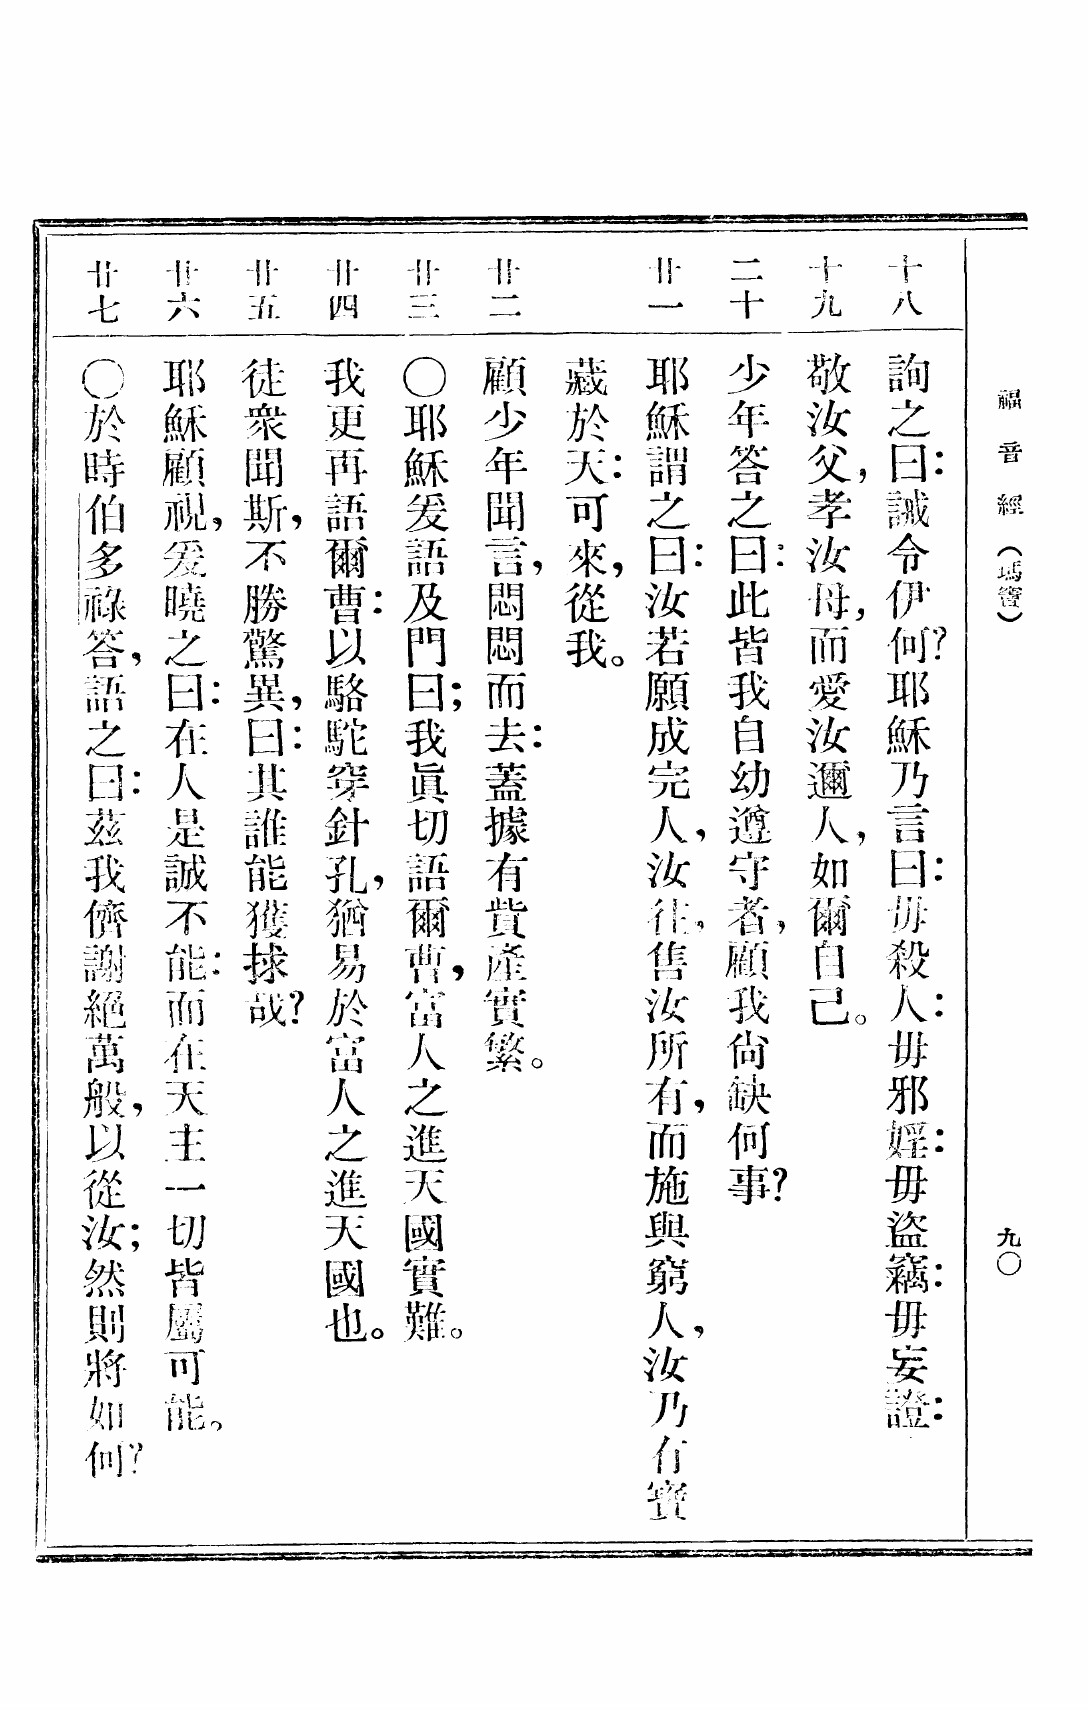 福音經(瑪竇)
九〇
十八
詢之曰:誡令伊何?耶穌乃言曰:毋殺人:毋邪婬:毋盜竊:毋妄證:
十九
敬汝父,孝汝母,而愛汝邇人,如爾自己。
二十
少年答之曰:此皆我自幼遵守者,顧我尙缺何事?
廿一
耶穌謂之曰:汝若願成完人,汝往,售汝所有,而施與窮人,汝乃有寶
藏於天:可來,從我。
廿二
顧少年聞言,悶悶而去:蓋據有貲產實繁。
廿三
〇耶穌爰語及門曰;我眞切語爾曹,富人之進天國實難。
廿四
我更再語爾曹:以駱駝穿針孔,猶易於富人之進天國也。
廿五
徒衆聞斯,不勝驚異,曰:其誰能獲捄哉?
廿六
耶穌顧視,爰曉之曰:在人是誠不能:而在天主一切皆屬可能。
廿七
〇於時伯多祿答,語之曰:茲我儕謝絕萬般,以從汝;然則將如何?